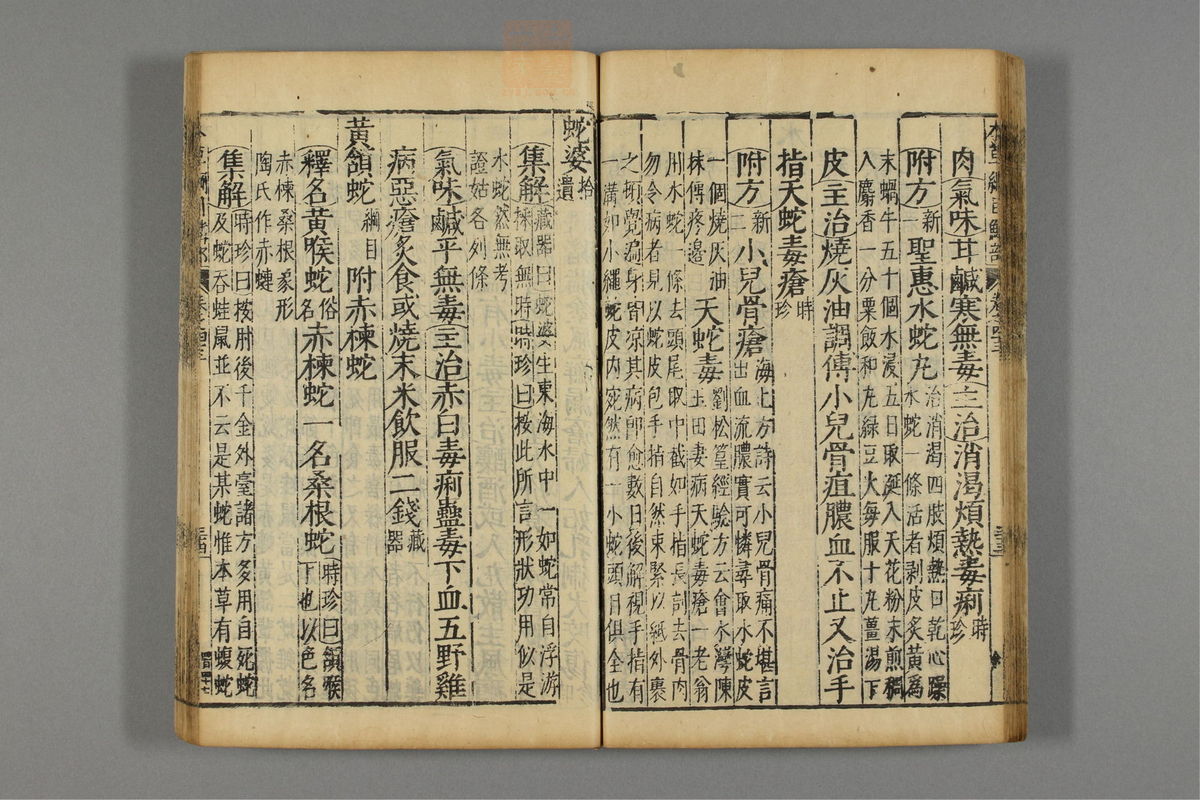 肉氣味甘鹹寒無毒主治消渴煩熱毒痢時珍
附方新一聖惠水蛇丸治消渴四肢煩熱口乾心躁水蛇一條活者剥皮炙黃爲
末蝸牛五十個水浸五日取涎入天花粉末煎稠
入麝香一分粟飯和丸綠豆大每服十丸薑湯下
皮主治燒灰油調傅小兒骨疽膿血不止又治手
指天蛇毒瘡時珍
附方新二小兒骨瘡海上方詩云小兒骨痛不堪言出血流膿實可憐尋取水蛇皮
一個燒灰油抹傅疼邊天蛇毒劉松篁經驗方云會水灣陳玉田妻病天蛇毒瘡一老翁
用水蛇一條去頭尾取中截如手指長剖去骨肉
勿令病者見以蛇皮包手指自然束緊以紙外裹
之頓覺遍身皆凉其病即愈數日後解視手指有
一溝如小繩蛇皮内宛然有一小蛇頭目俱全也
蛇婆拾遺
集解藏器曰蛇婆生東海水中一如蛇常自浮游採取無時時珍曰按此所言形狀功用似是
水蛇然無考證姑各列條
氣味鹹平無毒主治赤白毒痢蠱毒下血五野雞
病惡瘡炙食或燒末米飲服二錢藏器
黃頷蛇綱目附赤楝蛇
釋名黃喉蛇俗名赤楝蛇一名桑根蛇時珍曰頷喉下也以色名
赤楝桑根象形陶氏作赤蝀
集解時珍曰按肘後千金外臺諸方多用自死蛇及蛇吞蛙鼠並不云是某蛇惟本草有蝮蛇